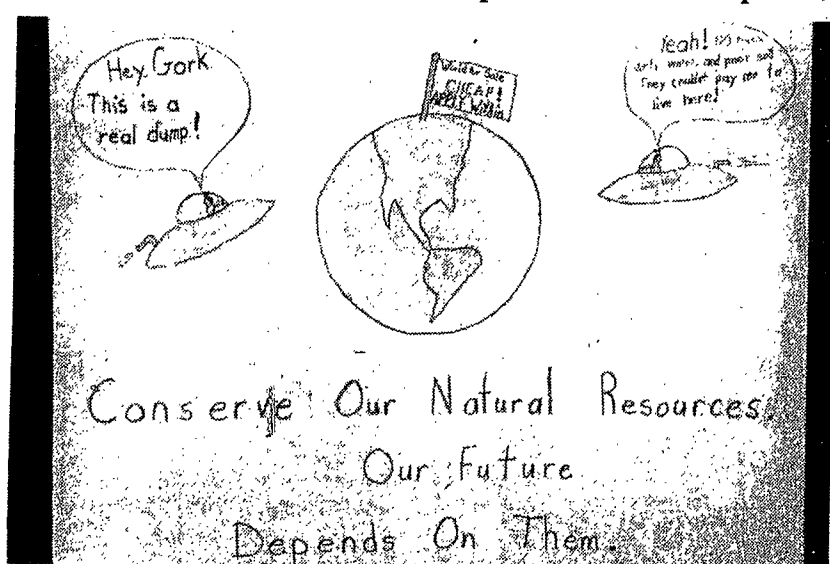 Hey Gork
This is a
real dump!
World for Sale
CHEAP!
APPLY Within
Yeah!
dirty water, and poor soil
They couldn't pay me to
live here!
Conserve Our Natural Resources.
Our Future
Depends On Them.